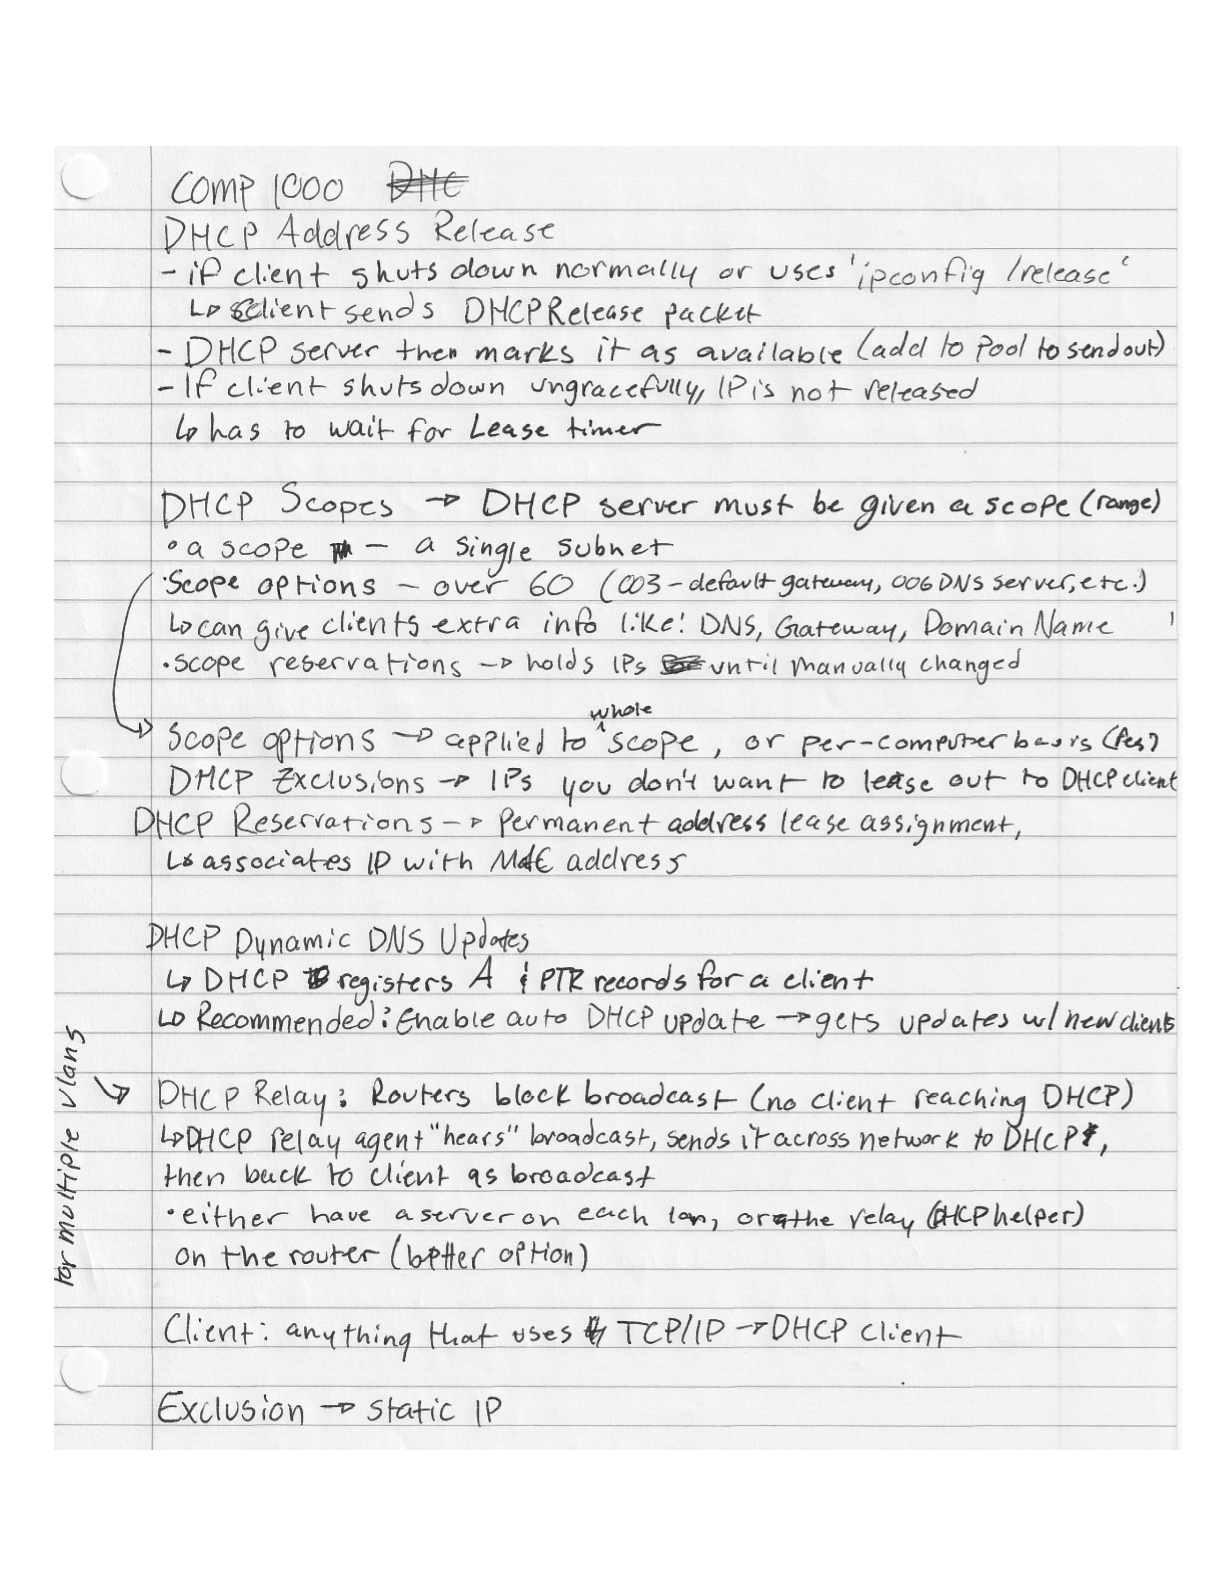 COMP 1000
DHCP Address Release
- if client shuts down normally or uses 'ipconfig /release'
↳ client sends DHCPRelease packet
- DHCP server then marks it as available (add to Pool to send out)
- If client shuts down ungracefully, IP is not released
↳ has to wait for Lease timer
DHCP Scopes → DHCP server must be given a scope (range)
• a scope — a single subnet
• Scope options — over 60 (003 - default gateway, 006 DNS server, etc.)
↳ can give clients extra info like: DNS, Gateway, Domain Name
• scope reservations → holds IPs until manually changed
whole
Scope options → applied to ^ scope, or per-computer basis
DHCP Exclusions → IPs you don't want to lease out to DHCP client
DHCP Reservations → Permanent address lease assignment,
↳ associates IP with MAC address
DHCP Dynamic DNS Updates
↳ DHCP registers A & PTR records for a client
↳ Recommended: Enable auto DHCP update → gets updates w/ new clients
for multiple vlans
DHCP Relay: Routers block broadcast (no client reaching DHCP)
↳ DHCP relay agent "hears" broadcast, sends it across network to DHCP,
then back to client as broadcast
• either have a server on each lan, or the relay (DHCP helper)
on the router (better option)
Client: anything that uses TCP/IP → DHCP client
Exclusion → static IP